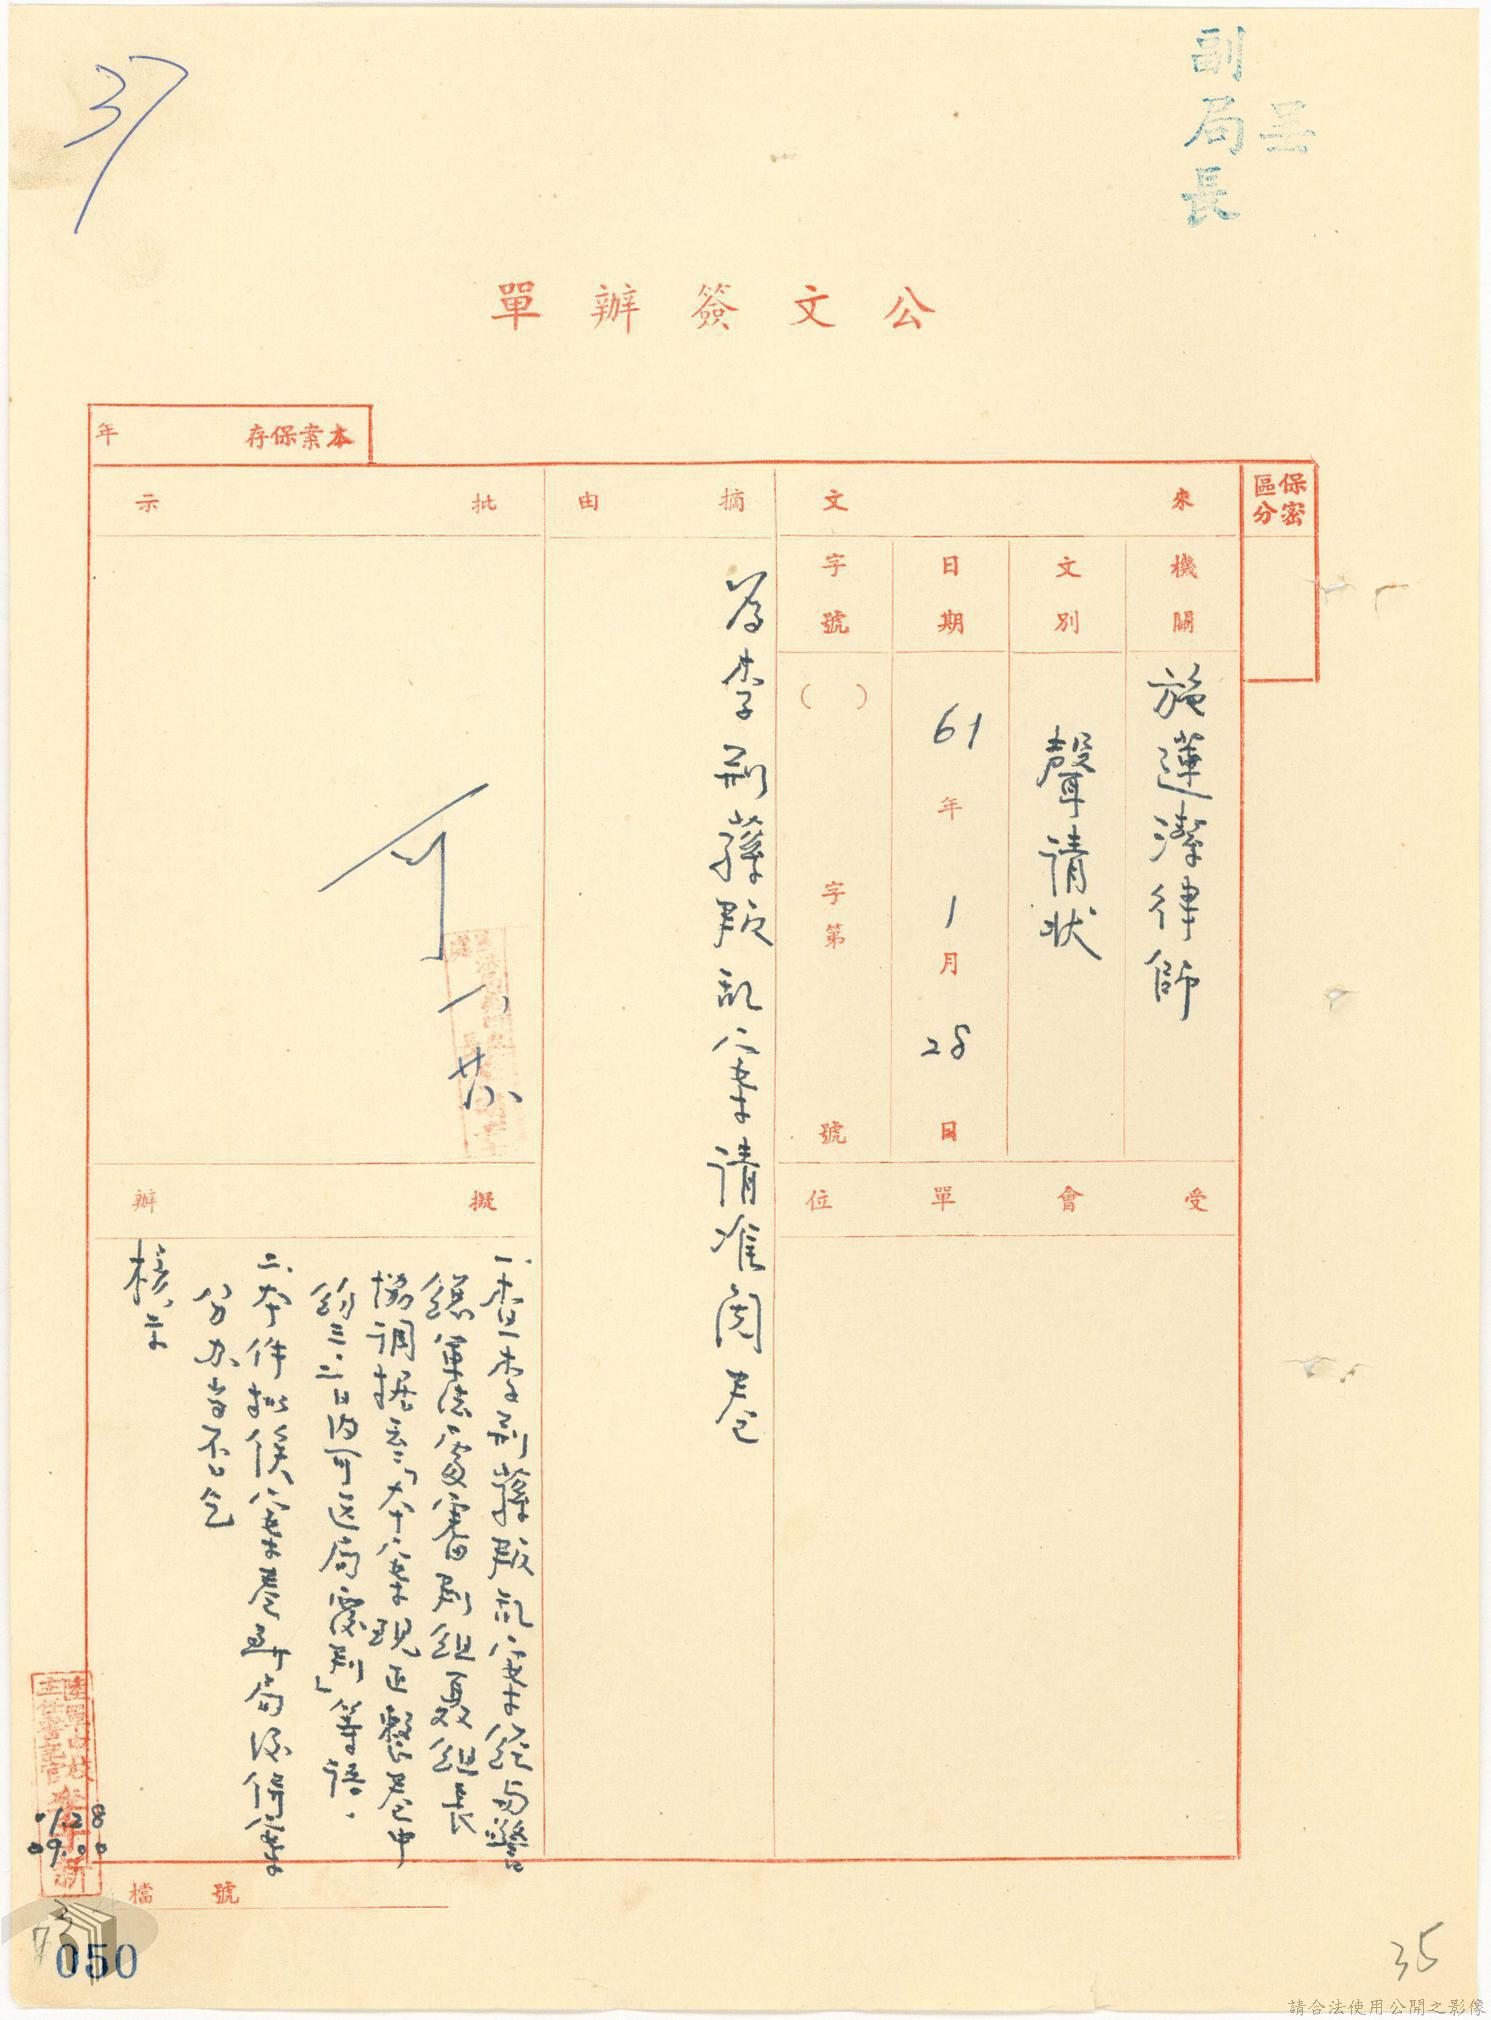 37
副局長
公文簽辦單
本案保存 年
保密區分
來文
機關
施蓮潔律師
文別
聲請狀
日期
61年1月28日
字號
( ) 字第 號
受會單位
摘由
為李荊蓀叛乱案请准閱卷
批示
可
擬辦
一、查李荊蓀叛乱案經与警
總軍法處審判組聶組長
協調據云「本案現正整卷中
約三、二日内可送局覆判」等語。
二、本件拟俟案卷到局后併案
分办當否乞
核示
0128
0900
檔號
050
35
請合法使用公開之影像